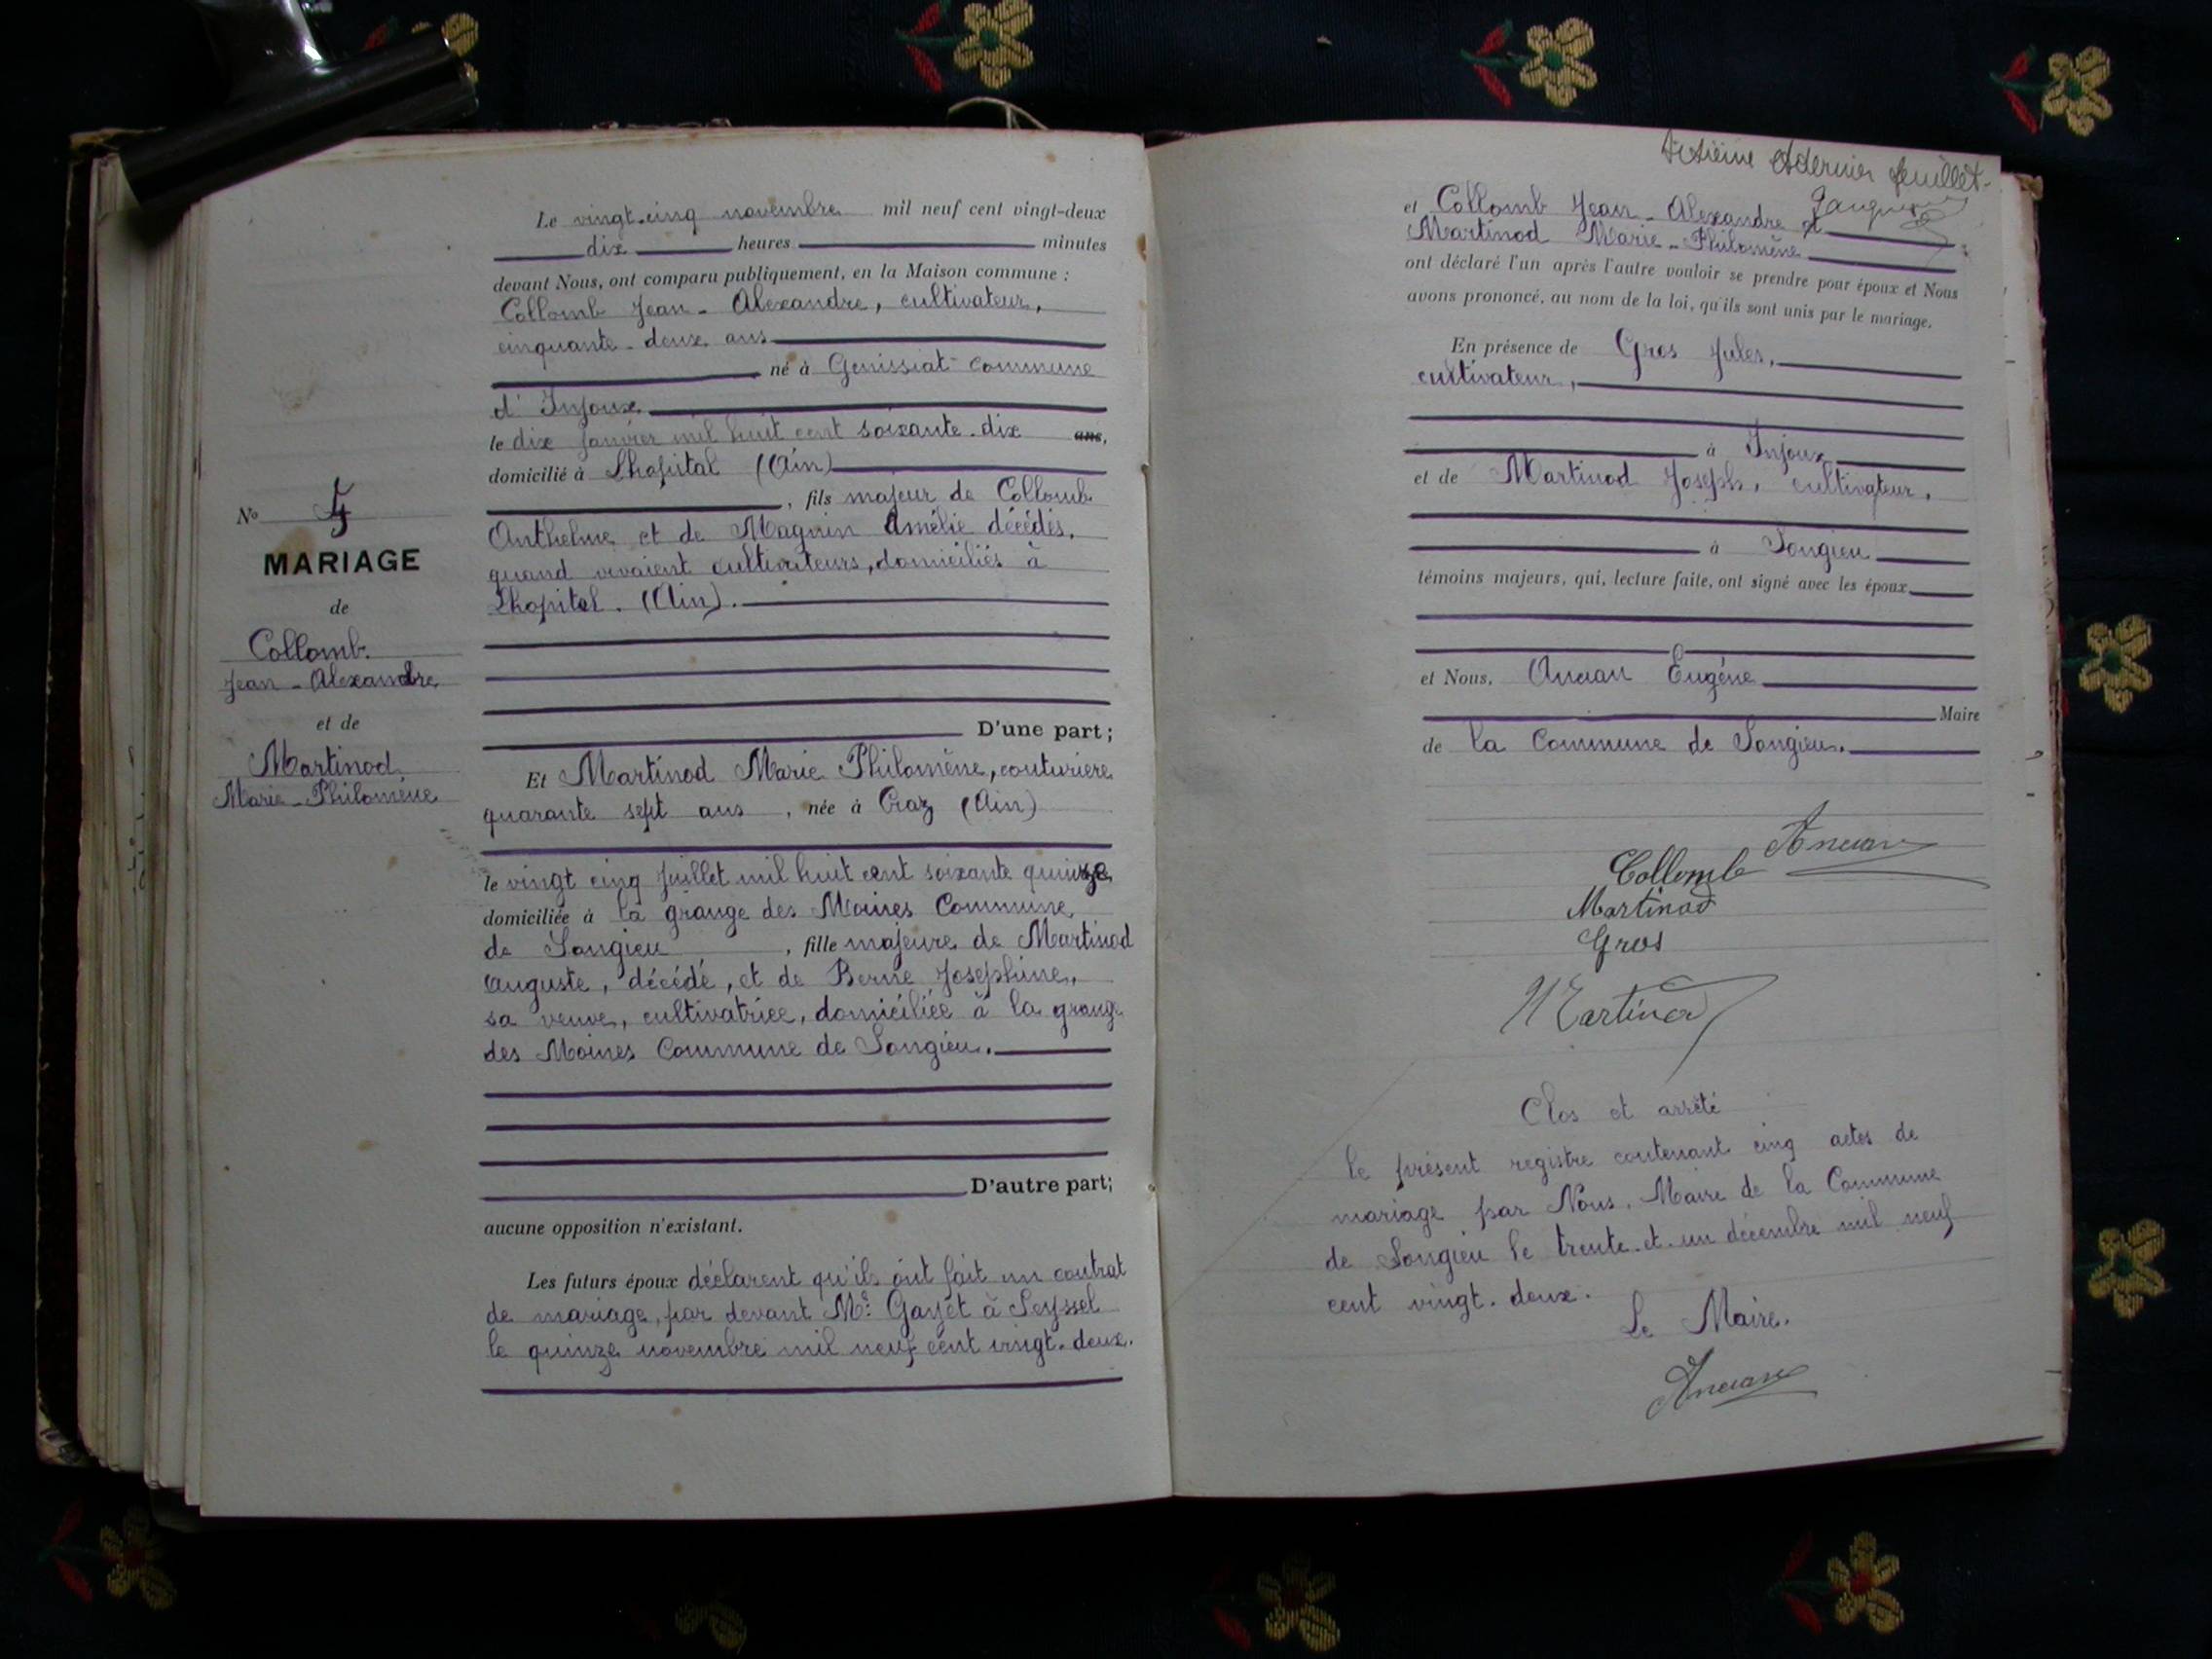 N° 5
MARIAGE
de
Collomb
Jean-Alexandre
et de
Martinod
Marie-Philomène
Le vingt-cinq novembre mil neuf cent vingt-deux
dix heures minutes
devant Nous, ont comparu publiquement, en la Maison commune :
Collomb Jean-Alexandre, cultivateur,
cinquante-deux ans
né à Genissiat commune
d'Injoux
le dix janvier mil huit cent soixante-dix ans,
domicilié à Lhopital (Ain)
, fils majeur de Collomb
Anthelme et de Magnin Amélie décédés,
quand vivaient cultivateurs, domiciliés à
Lhopital. (Ain).
D'une part ;
Et Martinod Marie Philomène, couturière
quarante sept ans , née à Craz (Ain)
le vingt cinq juillet mil huit cent soixante quinze
domiciliée à la grange des Moines Commune
de Songieu , fille majeure de Martinod
Auguste, décédé, et de Berne Josephine,
sa veuve, cultivatrice, domiciliée à la grange
des Moines Commune de Songieu.
D'autre part;
aucune opposition n'existant.
Les futurs époux déclarent qu'ils ont fait un contrat
de mariage, par devant Me Gayet à Seyssel
le quinze novembre mil neuf cent vingt-deux.
et dernier feuillet
et Collomb Jean-Alexandre et
Martinod Marie-Philomène
ont déclaré l'un après l'autre vouloir se prendre pour époux et Nous
avons prononcé, au nom de la loi, qu'ils sont unis par le mariage.
En présence de Gros Jules,
cultivateur,
à Injoux
et de Martinod Joseph, cultivateur,
à Songieu
témoins majeurs, qui, lecture faite, ont signé avec les époux
et Nous, Ancian Eugène
Maire
de la Commune de Songieu.
Collomb Ancian
Martinod
Gros
Martinod
Clos et arrêté
le présent registre contenant cinq actes de
mariage par Nous, Maire de la Commune
de Songieu le trente-et-un décembre mil neuf
cent vingt-deux.
Le Maire.
Ancian